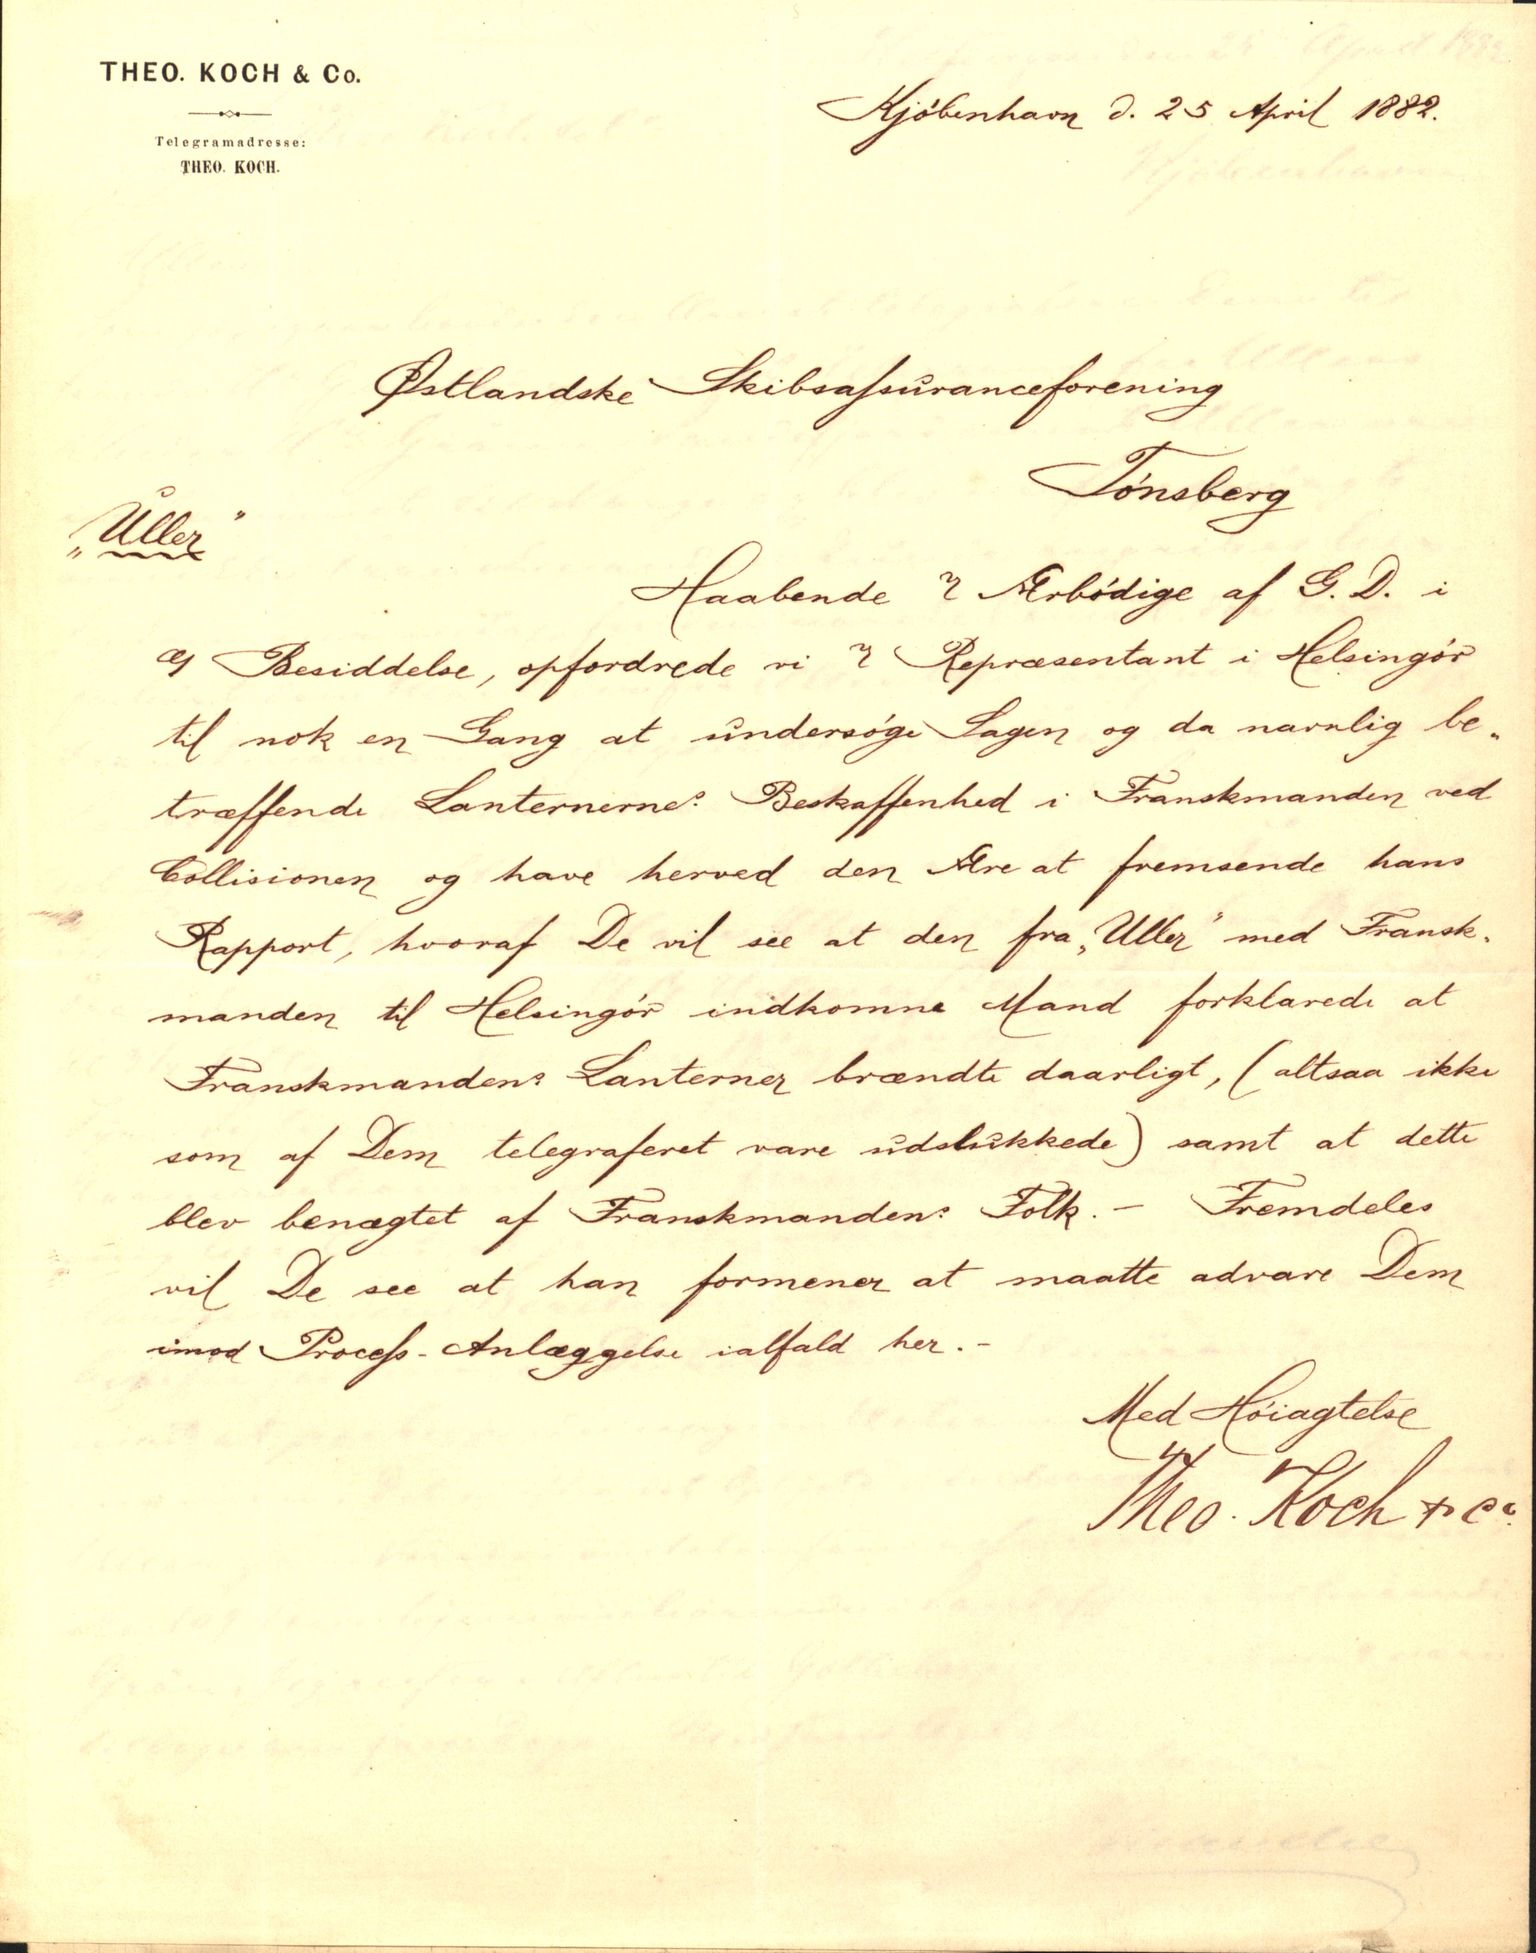 THEO. KOCH & Co.
Telegramadresse:
THEO. KOCH.
Kjøbenhavn d. 25 April 1882.
Østlandske Skibsassuranceforening
Tønsberg
„Uller"
Haabende Ærbødige af G. D. i
Besiddelse, opfordrede vi Repræsentant i Helsingør
til nok en Gang at undersøge Sagen og da navnlig be-
træffende Lanternernes Beskaffenhed i Franskmanden ved
Collisionen og have herved den Ære at fremsende hans
Rapport, hvoraf De vil see at den fra „Uller" med Fransk-
manden til Helsingør indkomne Mand forklarede at
Franskmandens Lanterner brændte daarligt, (altsaa ikke
som af Dem telegraferet vare udslukkede) samt at dette
blev benægtet af Franskmandens Folk. — Fremdeles
vil De see at han formener at maatte advare Dem
imod Process-Anlæggelse ialfald her. —
Med Høiagtelse
Theo. Koch & Co.